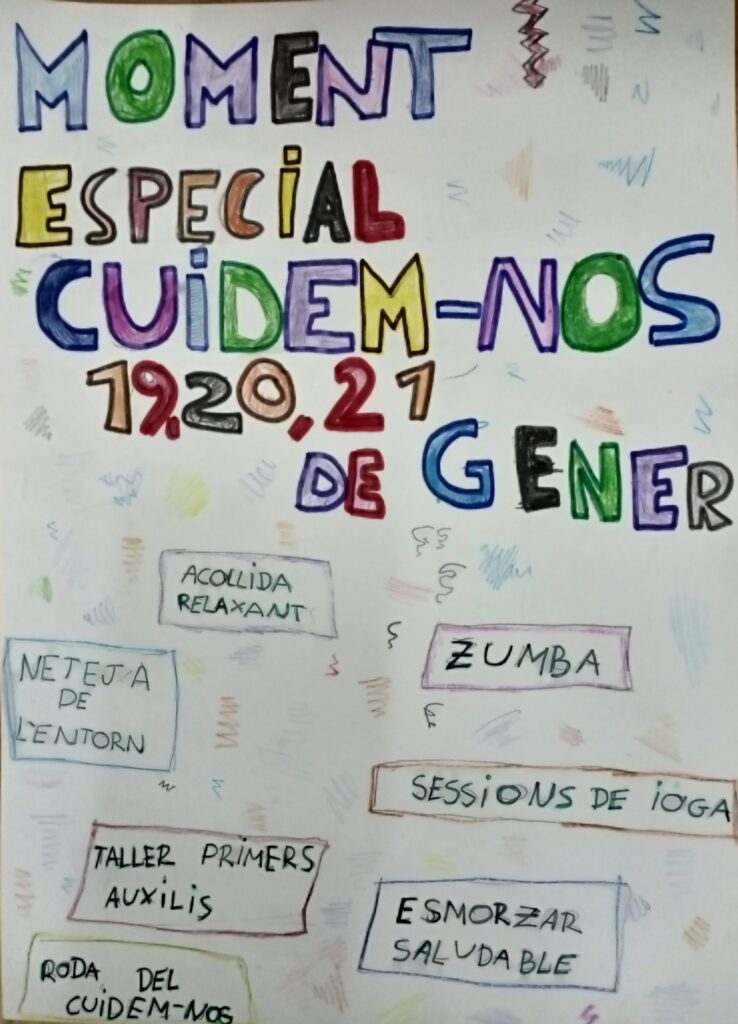 MOMENT
ESPECIAL
CUIDEM-NOS
19,20,21
DE GENER
ACOLLIDA
RELAXANT
ZUMBA
NETEJA
DE
L'ENTORN
SESSIONS DE IOGA
TALLER PRIMERS
AUXILIS
ESMORZAR
SALUDABLE
RODA DEL
CUIDEM-NOS